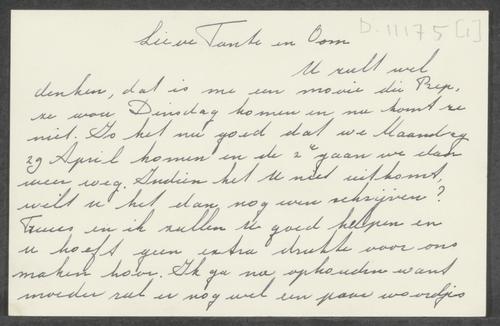 D-11175 [1]
Lieve Tante en Oom
U zult wel
denken, dat is me een mooie die Pep,
ze wou Dinsdag komen en nu komt ze
niet. Is het nu goed dat we Maandag
29 April komen en de 2e gaan we dan
weer weg. Indien het U niet uitkomt,
wilt u het dan nog even schrijven?
Truus en ik zullen U goed helpen en
u hoeft geen extra drukte voor ons
maken hoor. Ik ga nu ophouden want
moeder zal er nog wel een paar woordjes